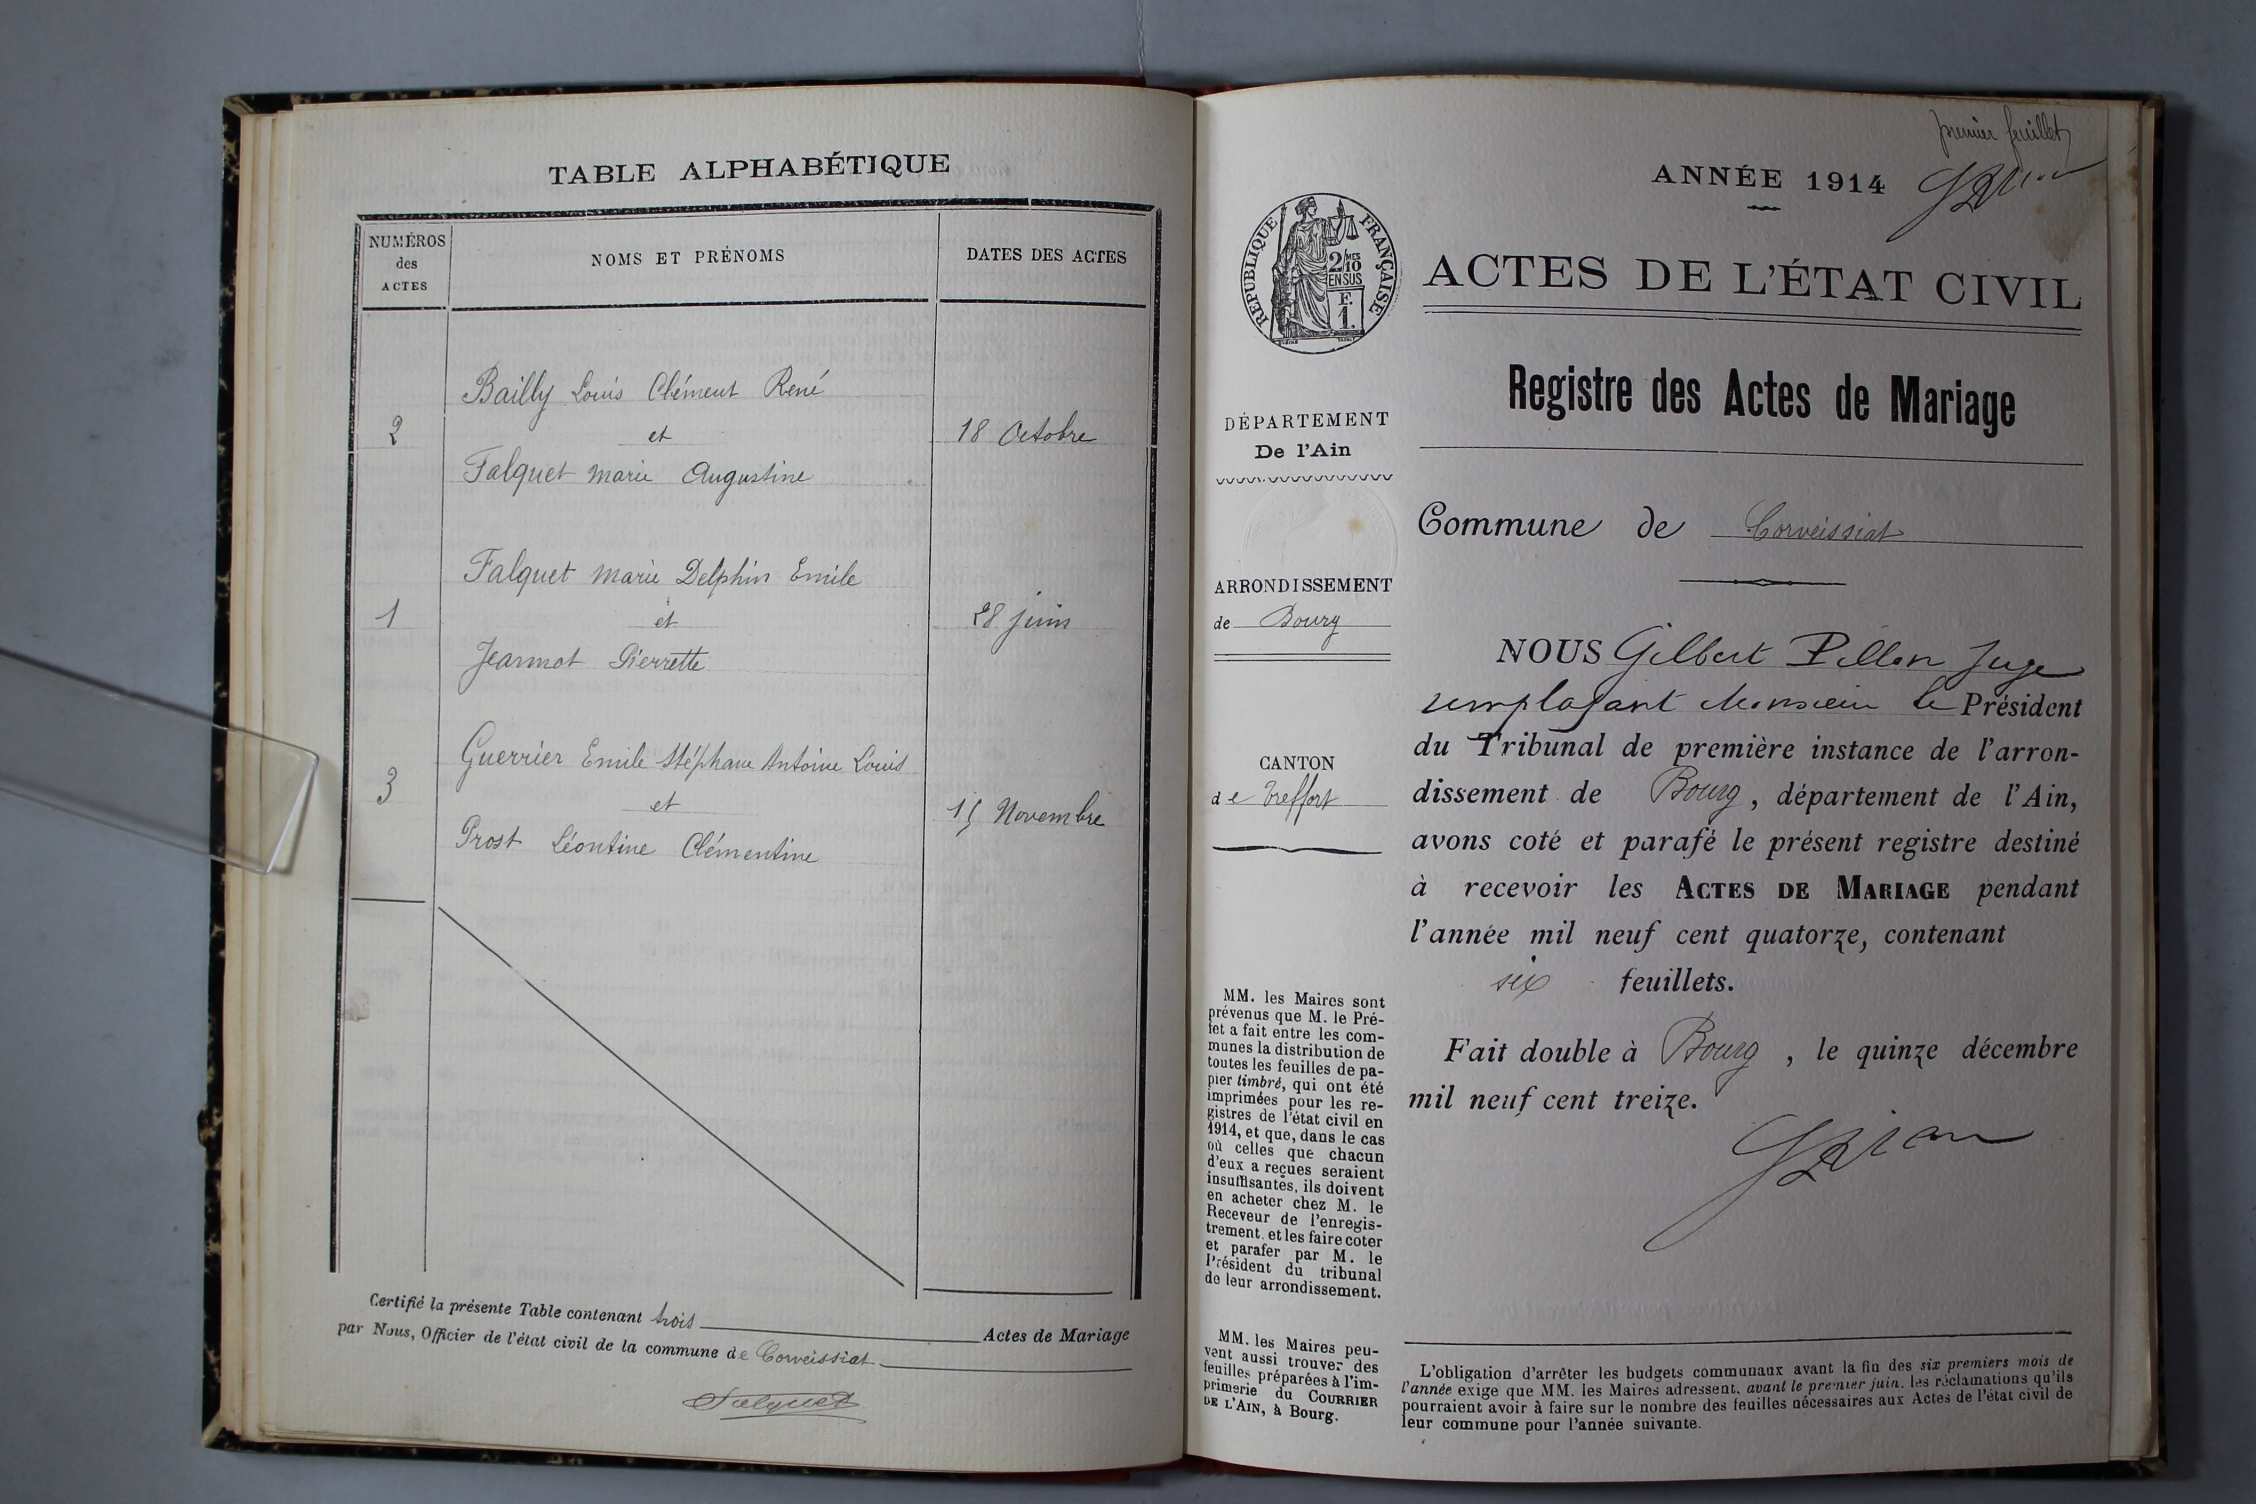 TABLE ALPHABÉTIQUE
NUMÉROS
des
ACTES
NOMS ET PRÉNOMS
DATES DES ACTES
Bailly Louis Clément René
2 et 18 Octobre
Falquet Marie Augustine
Falquet Marie Delphin Emile
1 et 28 juin
Jeannot Pierrette
Guerrier Emile Stéphane Antoine Louis
3 et 15 Novembre
Prost Léontine Clémentine
Certifié la présente Table contenant trois Actes de Mariage
par Nous, Officier de l'état civil de la commune de Corveissiat
Falquet
premier feuillet
ANNÉE 1914
RÉPUBLIQUE FRANÇAISE
2/MES
10
EN SUS
F.
1.
ACTES DE L'ÉTAT CIVIL
Registre des Actes de Mariage
DÉPARTEMENT
De l'Ain
Commune de Corveissiat
ARRONDISSEMENT
de Bourg
CANTON
de Treffort
NOUS Gilbert Pillon Juge
remplaçant Monsieur le Président
du Tribunal de première instance de l'arron-
dissement de Bourg, département de l'Ain,
avons coté et parafé le présent registre destiné
à recevoir les ACTES DE MARIAGE pendant
l'année mil neuf cent quatorze, contenant
six feuillets.
Fait double à Bourg, le quinze décembre
mil neuf cent treize.
MM. les Maires sont
prévenus que M. le Pré-
fet a fait entre les com-
munes la distribution de
toutes les feuilles de pa-
pier timbré, qui ont été
imprimées pour les re-
gistres de l'état civil en
1914, et que, dans le cas
où celles que chacun
d'eux a reçues seraient
insuffisantes, ils doivent
en acheter chez M. le
Receveur de l'enregis-
trement, et les faire coter
et parafer par M. le
Président du tribunal
de leur arrondissement.
MM. les Maires peu-
vent aussi trouver des
feuilles préparées à l'im-
primerie du COURRIER
DE L'AIN, à Bourg.
L'obligation d'arrêter les budgets communaux avant la fin des six premiers mois de
l'année exige que MM. les Maires adressent, avant le premier juin, les réclamations qu'ils
pourraient avoir à faire sur le nombre des feuilles nécessaires aux Actes de l'état civil de
leur commune pour l'année suivante.